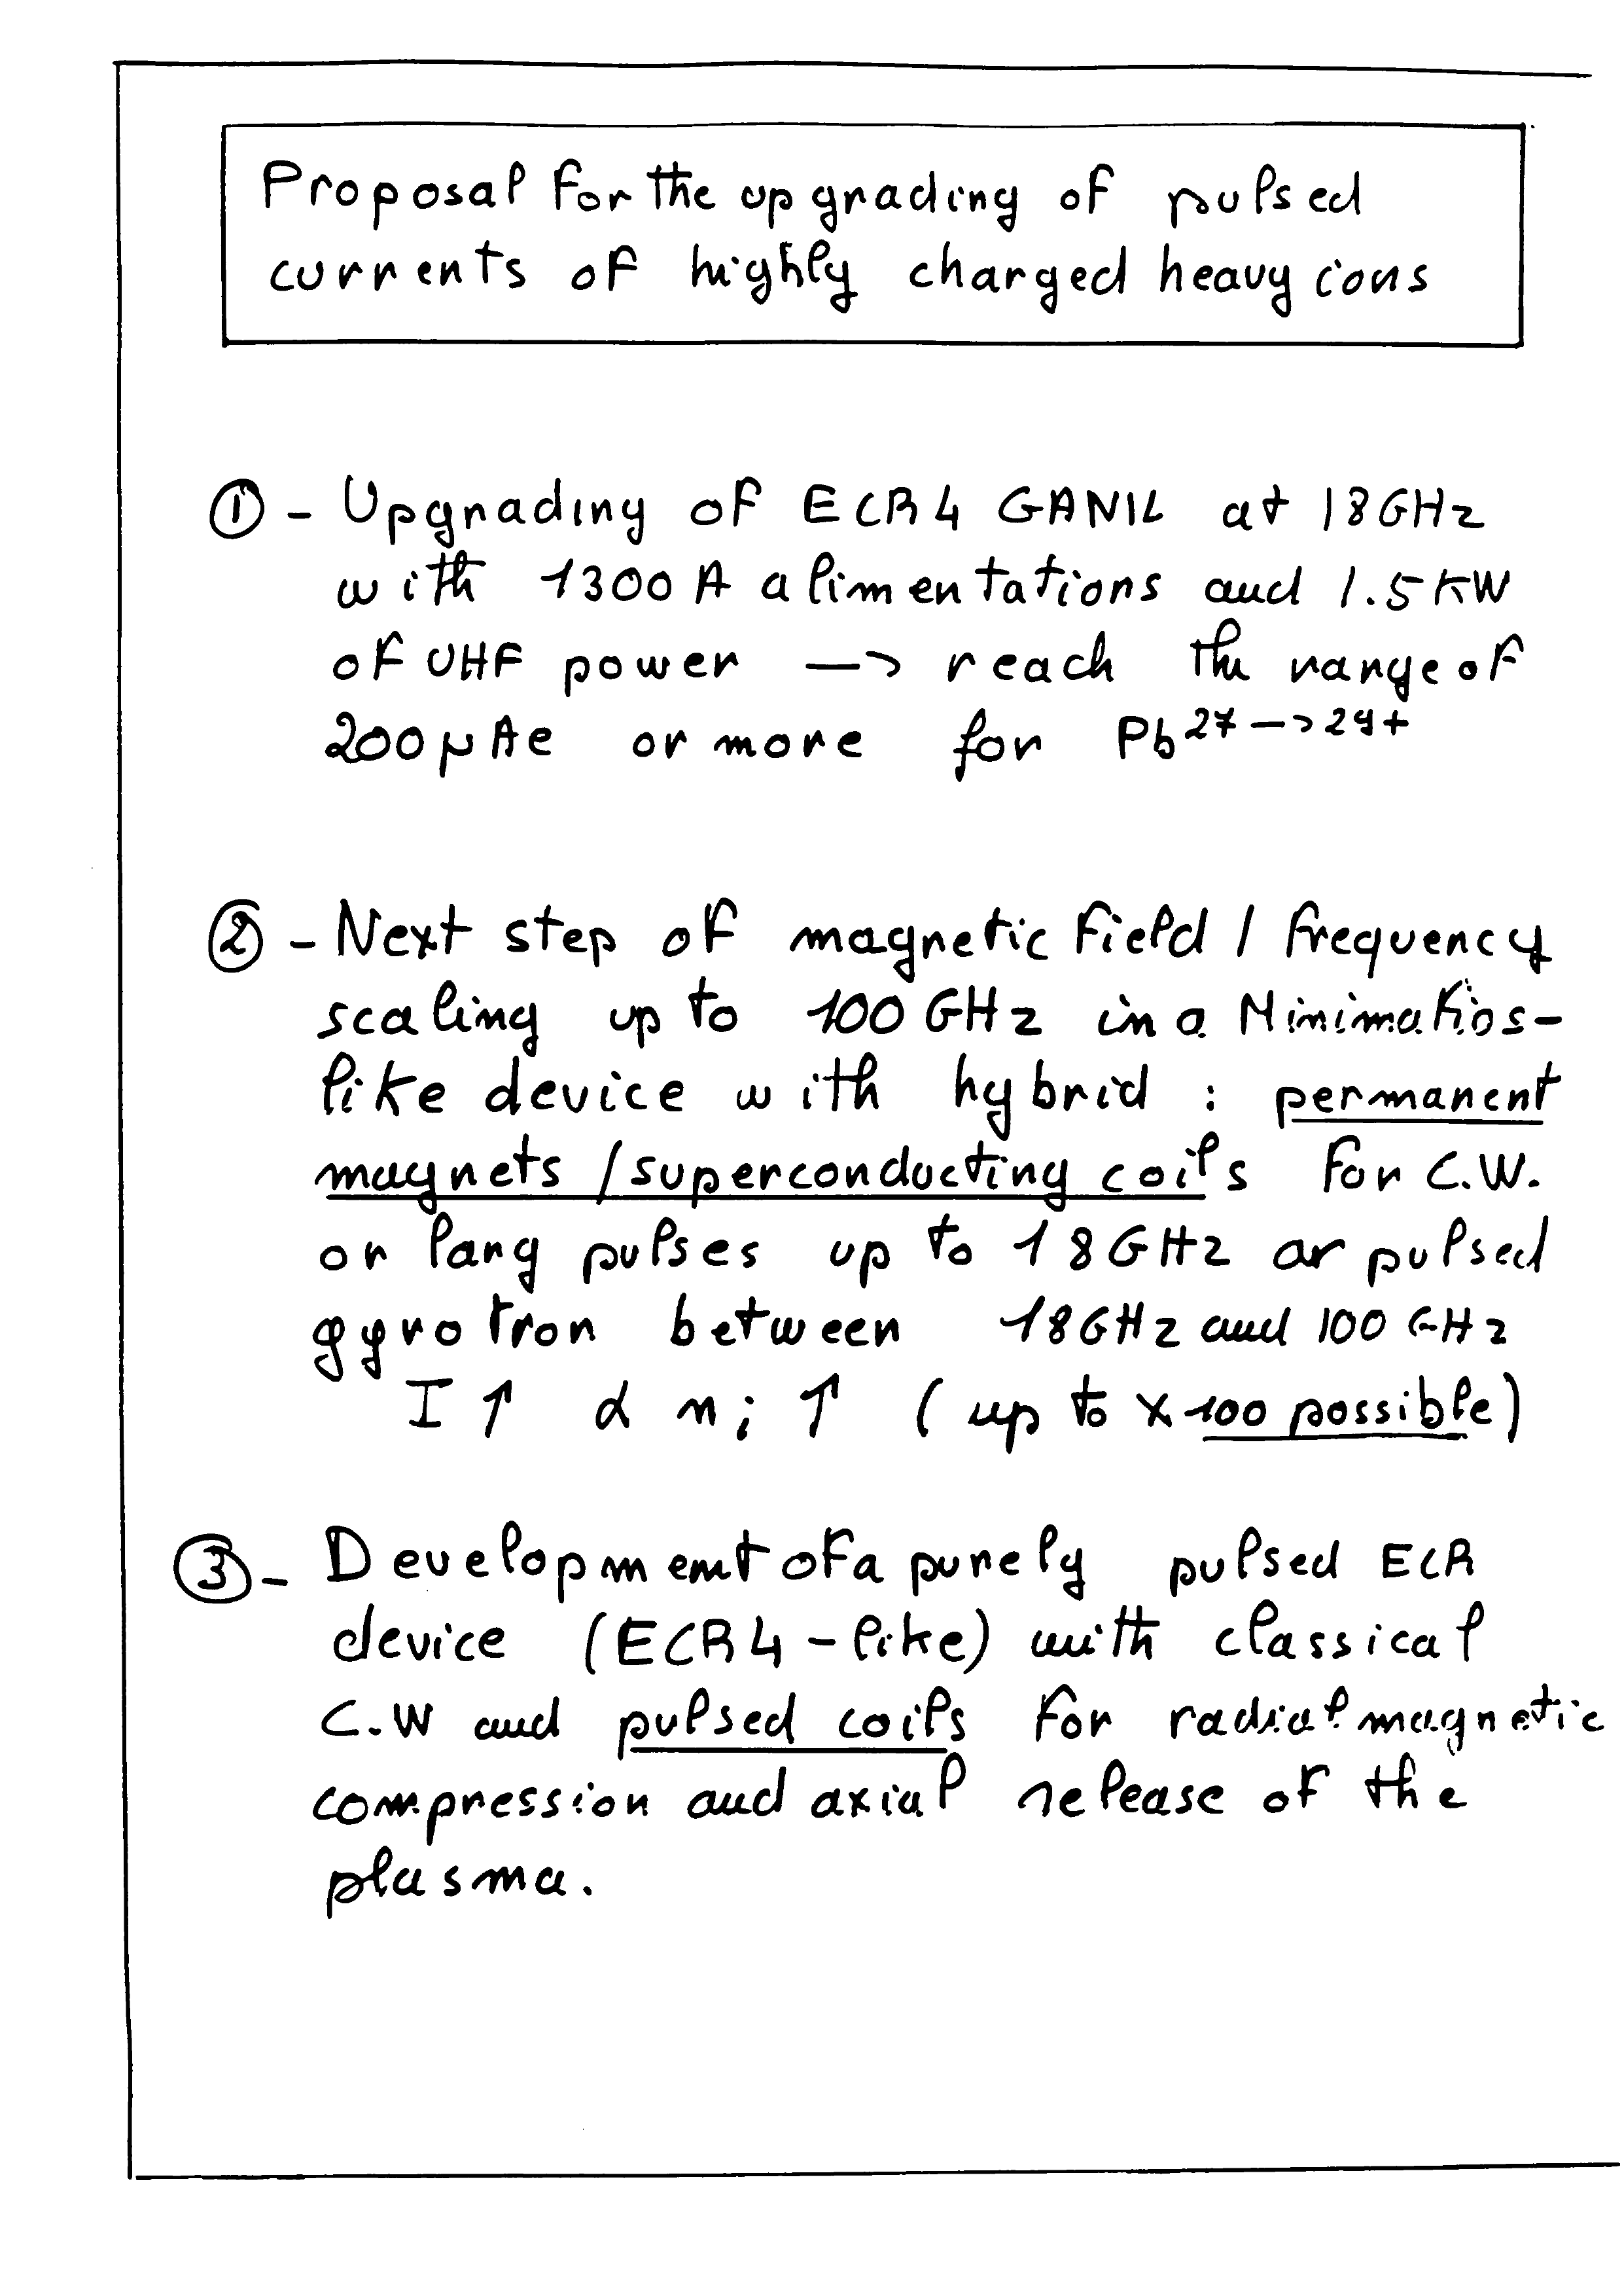 Proposal for the upgrading of pulsed
currents of highly charged heavy ions
① - Upgrading of ECR4 GANIL at 18GHz
with 1300A alimentations and 1.5KW
of UHF power —> reach the range of
200µAe or more for Pb27—>29+
② - Next step of magnetic field / frequency
scaling up to 100 GHz in a Minimafios-
like device with hybrid : permanent
magnets / superconducting coils for C.W.
or long pulses up to 18GHz or pulsed
gyrotron between 18GHz and 100 GHz
I ↑ α ni ↑ (up to x 100 possible)
③ - Development of a purely pulsed ECR
device (ECR4-like) with classical
C.W and pulsed coils for radial magnetic
compression and axial release of the
plasma.